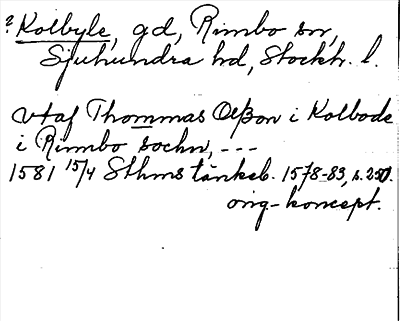 ? Kolbyle, gd, Rimbo sn,
Sjuhundra hd, Stockh. l.
vtaf Thommas Olßon i Kolbode
i Rimbo sochn, ---
1581 15/4 Sthms tänkeb. 1578-83, s. 250.
orig-koncept.